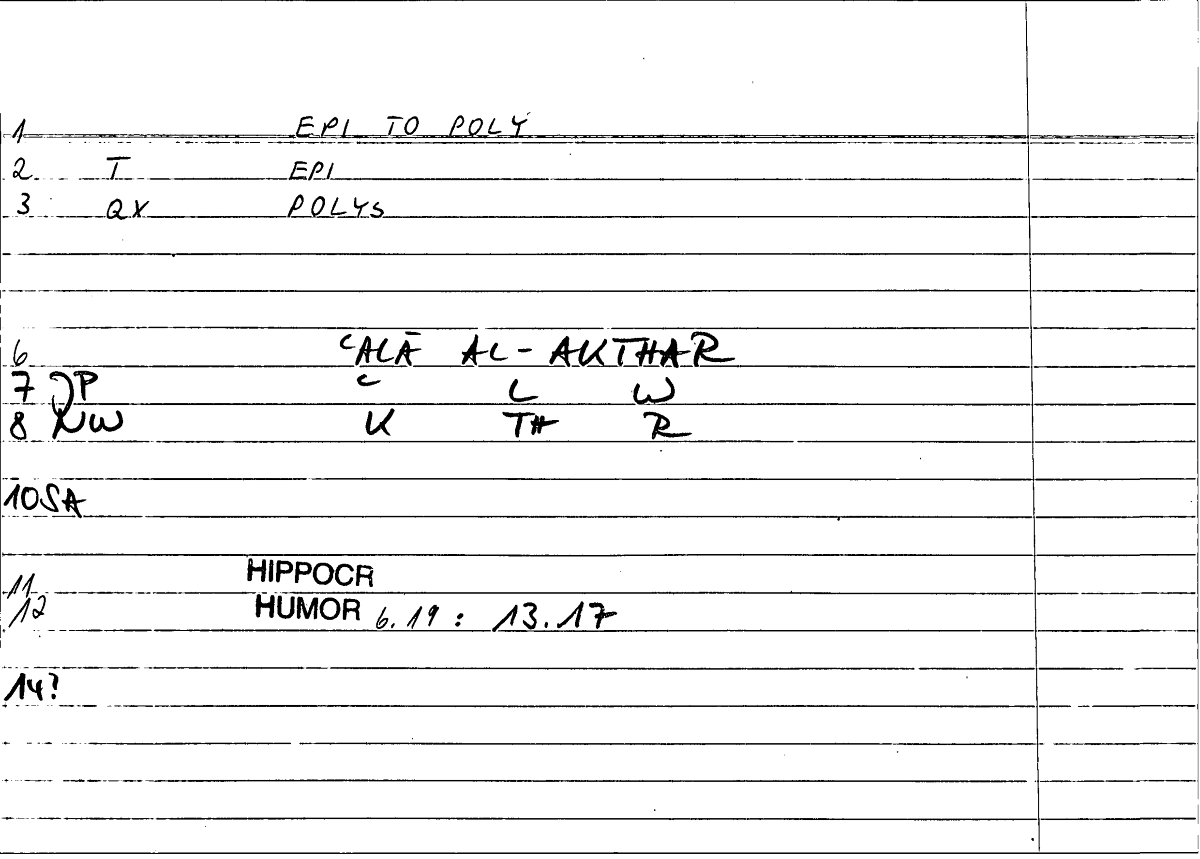 1 EPI TO POLY
2 T EPI
3 QX POLYS
6 ʿALĀ AL-AKTHAR
7 P ʿ L W
8 NW K TH R
10 SA
11 HIPPOCR
12 HUMOR 6.19 : 13.17
14?